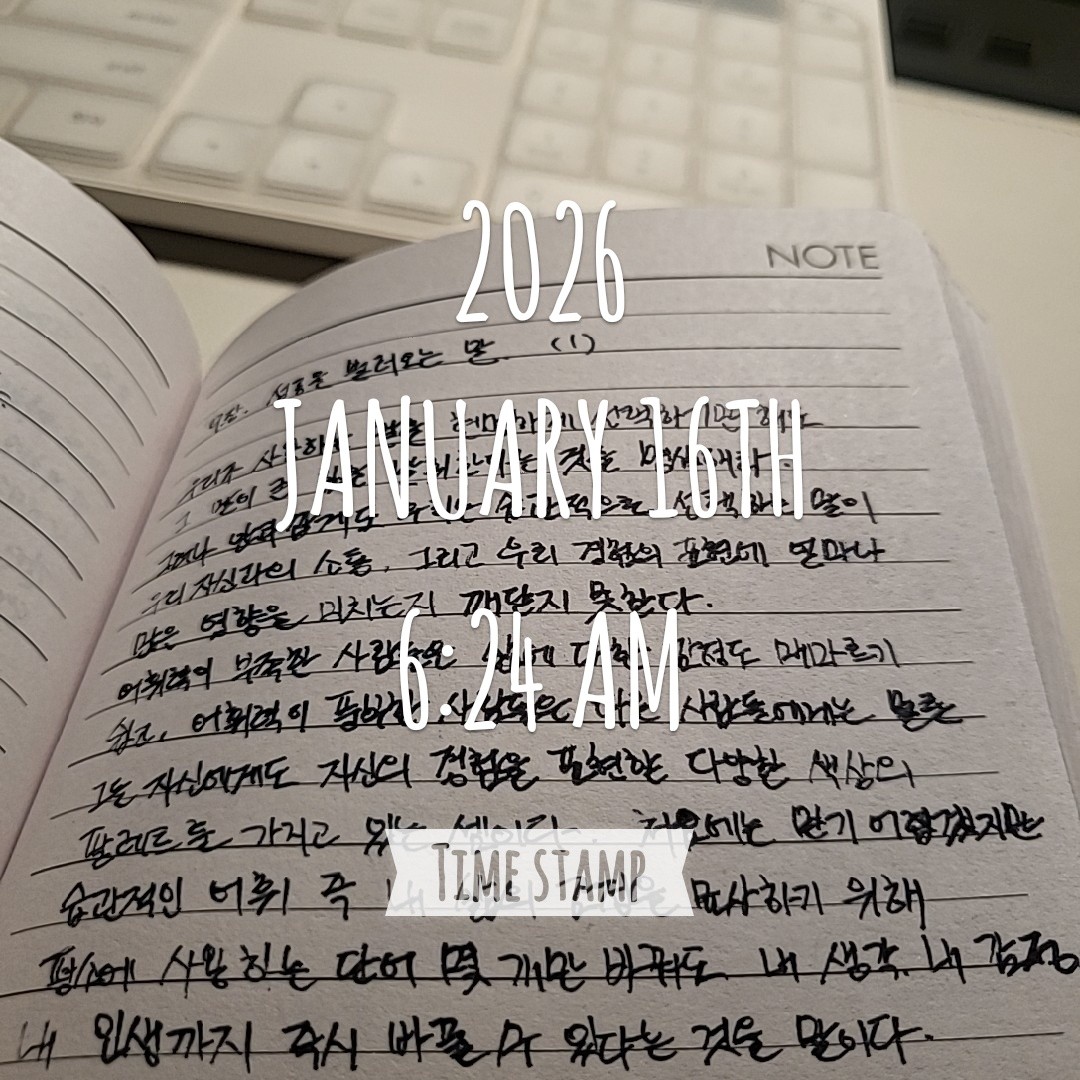 NOTE
2026
JANUARY 16TH
6:24 AM
TIME STAMP
불러오는 말. (1)
우리가 사용하는 말을 현명하게 선택하기만 해도
그 말이 것을 명심해라.
그러나 우리는 습관적으로 선택하는 말이
우리 자신과의 소통, 그리고 우리 경험의 표현에 얼마나
많은 영향을 미치는지 깨닫지 못한다.
어휘력이 부족한 사람들은 감정도 메마르기
쉽고, 어휘력이 풍부한 사람들은 다른 사람들에게는 물론
그들 자신에게도 자신의 경험을 표현할 다양한 색상의
팔레트를 가지고 있는 셈이다. 처음에는 믿기 어렵겠지만
습관적인 어휘 즉 내 묘사하기 위해
평소에 사용하는 단어 몇 개만 바꿔도 내 생각, 내 감정
내 인생까지 즉시 바꿀 수 있다는 것을 말이다.